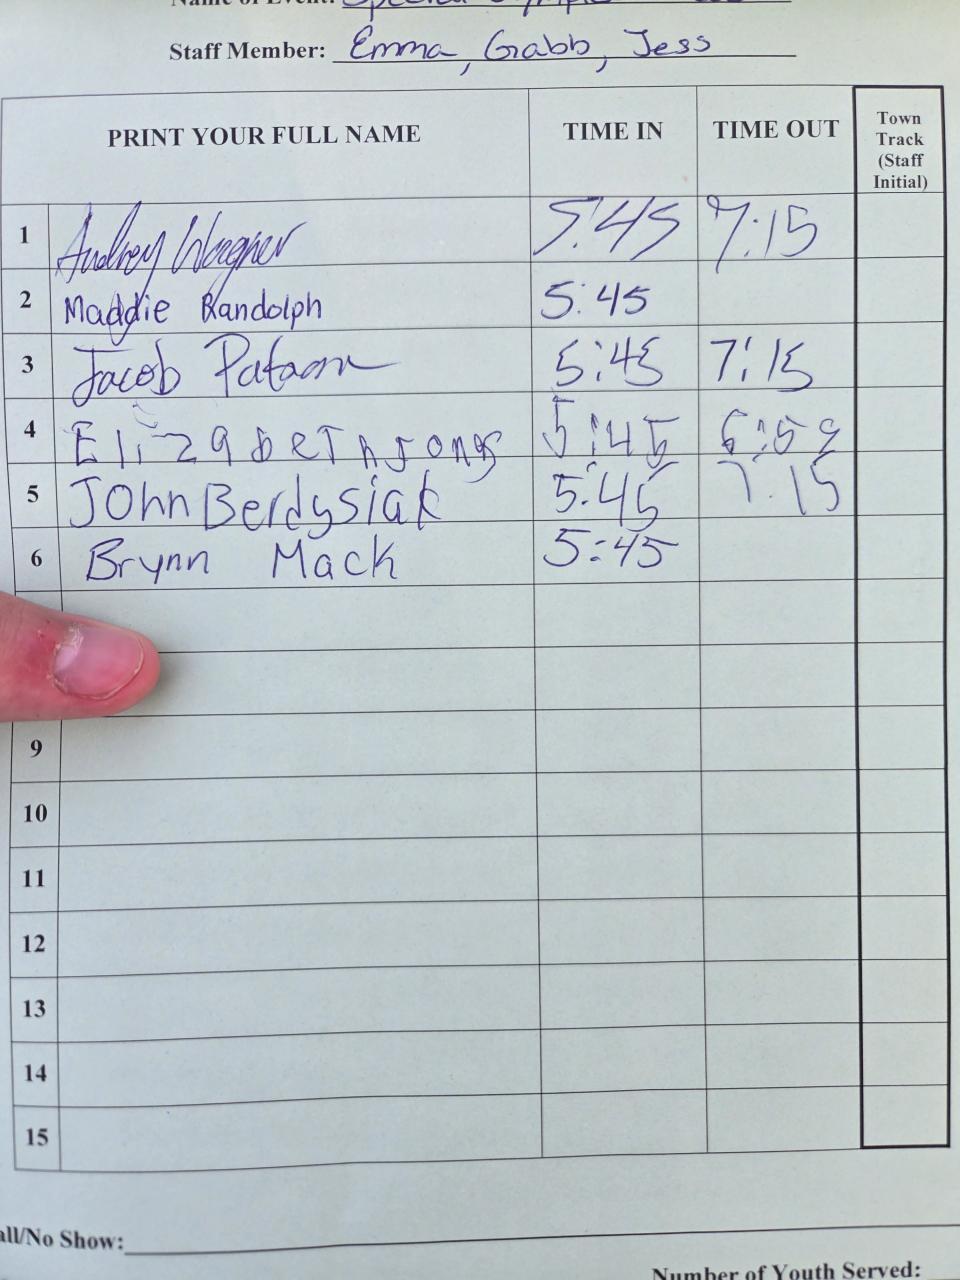 Name of Event: Special
Staff Member: Emma, Gabb, Jess
PRINT YOUR FULL NAME TIME IN TIME OUT Town Track (Staff Initial)
1 Audrey Wagner 5:45 7:15
2 Maddie Randolph 5:45
3 Jacob 5:45 7:15
4 Elizabeth Jones 5:45 6:58
5 John Berdysiak 5:45 7:15
6 Brynn Mack 5:45
9
10
11
12
13
14
15
all/No Show:
Number of Youth Served: